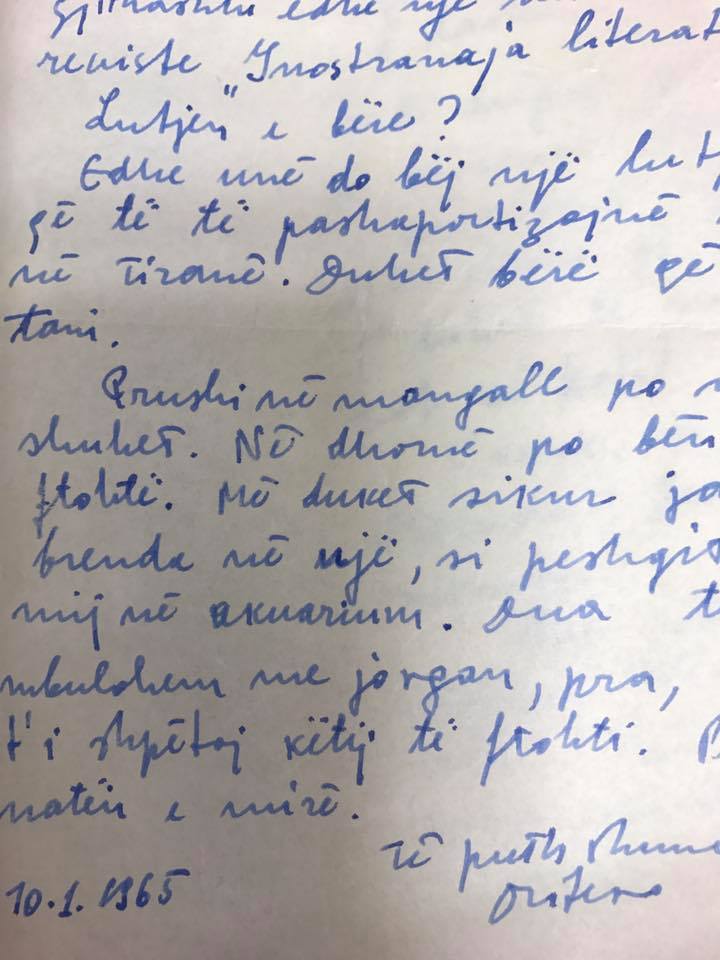 gjithashtu edhe një
reviste "Inostranaja literat
Lutjen" e bëre?
Edhe unë do bëj një lut
që të të pashaportizojnë
në Tiranë. Duhet bërë që
tani.
Prushi në mangall po
shuhet. Në dhomë po bën
ftohtë. Më duket sikur ja
brenda në ujë, si peshqit
mij në akuarium. Dua t
mbulohem me jorgan, pra,
t'i shpëtoj këtij të ftohti.
natën e mirë.
Të puth shumë
Dritëro
10.1.1965